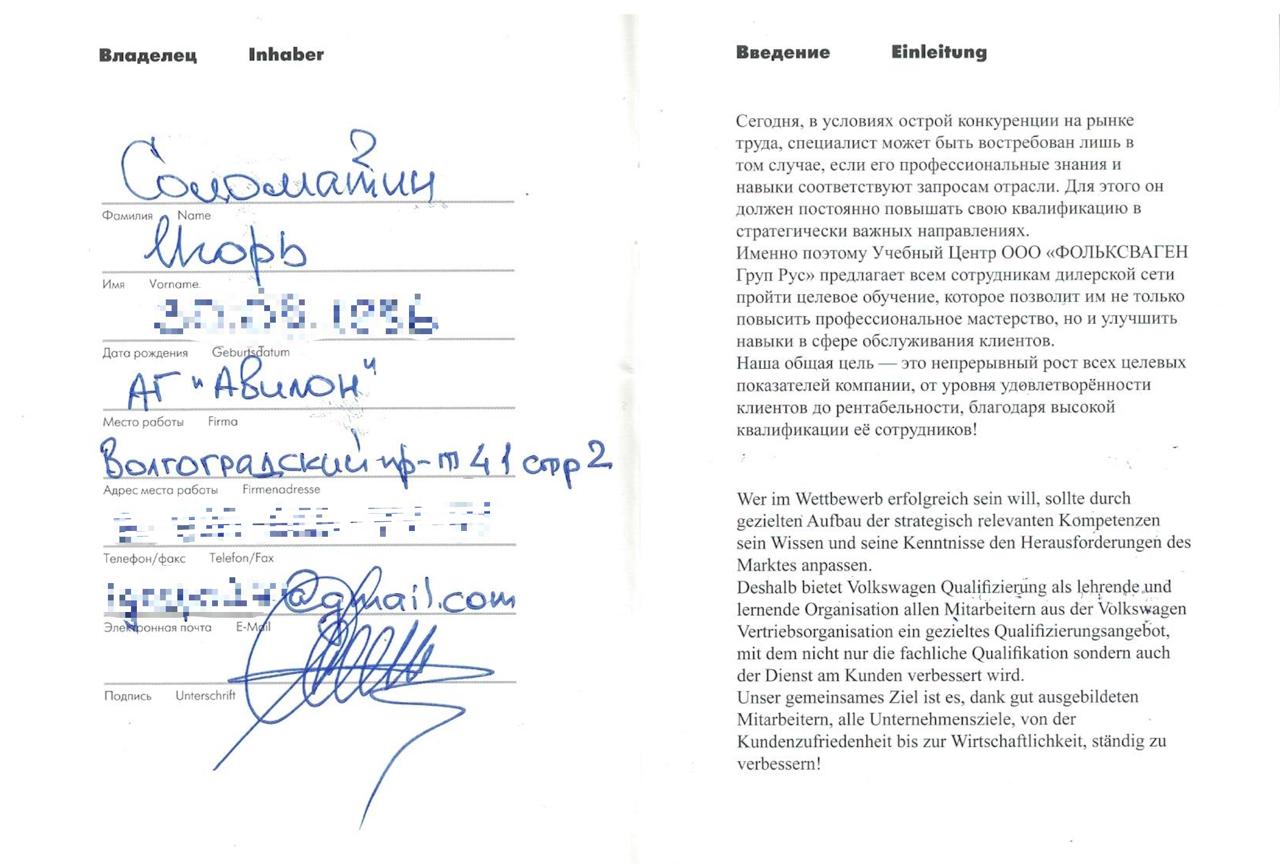 Владелец Inhaber
Соломатин
Фамилия Name
Игорь
Имя Vorname
Дата рождения Geburtsdatum
АГ "Авилон"
Место работы Firma
Волгоградский пр-т 41 стр 2
Адрес места работы Firmenadresse
Телефон/факс Telefon/Fax
@gmail.com
Электронная почта E-Mail
Подпись Unterschrift
Введение Einleitung
Сегодня, в условиях острой конкуренции на рынке
труда, специалист может быть востребован лишь в
том случае, если его профессиональные знания и
навыки соответствуют запросам отрасли. Для этого он
должен постоянно повышать свою квалификацию в
стратегически важных направлениях.
Именно поэтому Учебный Центр ООО «ФОЛЬКСВАГЕН
Груп Рус» предлагает всем сотрудникам дилерской сети
пройти целевое обучение, которое позволит им не только
повысить профессиональное мастерство, но и улучшить
навыки в сфере обслуживания клиентов.
Наша общая цель — это непрерывный рост всех целевых
показателей компании, от уровня удовлетворённости
клиентов до рентабельности, благодаря высокой
квалификации её сотрудников!
Wer im Wettbewerb erfolgreich sein will, sollte durch
gezielten Aufbau der strategisch relevanten Kompetenzen
sein Wissen und seine Kenntnisse den Herausforderungen des
Marktes anpassen.
Deshalb bietet Volkswagen Qualifizierung als lehrende und
lernende Organisation allen Mitarbeitern aus der Volkswagen
Vertriebsorganisation ein gezieltes Qualifizierungsangebot,
mit dem nicht nur die fachliche Qualifikation sondern auch
der Dienst am Kunden verbessert wird.
Unser gemeinsames Ziel ist es, dank gut ausgebildeten
Mitarbeitern, alle Unternehmensziele, von der
Kundenzufriedenheit bis zur Wirtschaftlichkeit, ständig zu
verbessern!